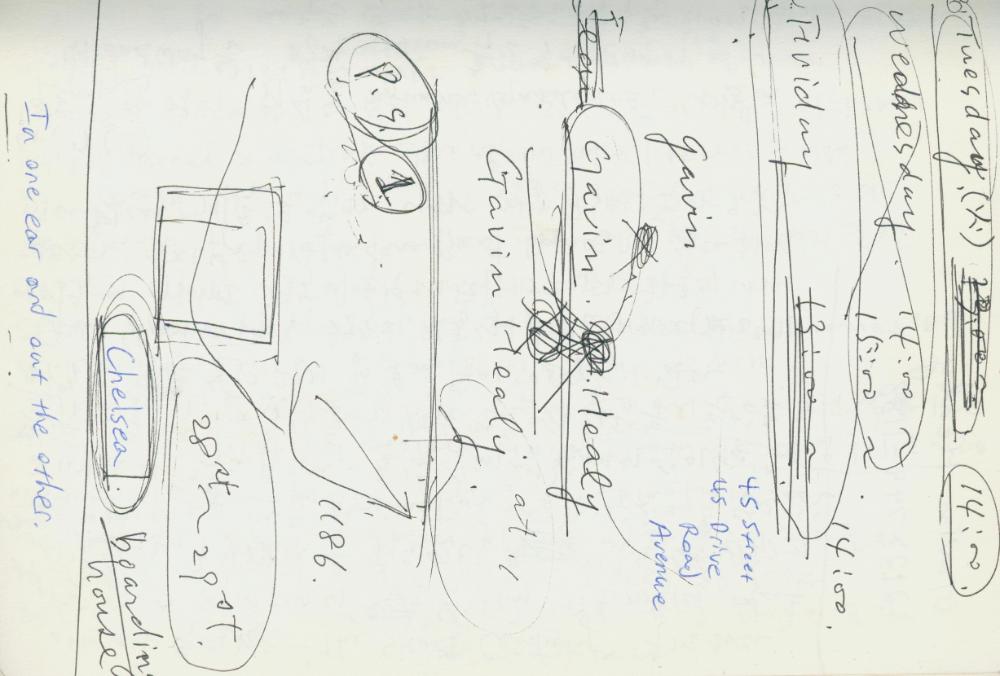 Tuesday, 14:00.
Wednesday. 14:00~
15:00~
Friday 13:00~
14:00.
45 Street
45 Drive
Road
Avenue
gavin
Gavin. Healy
Gavin Healy at,
P.S. 1
1186.
28st~29st.
Chelsea. boarding
house
In one ear and out the other.